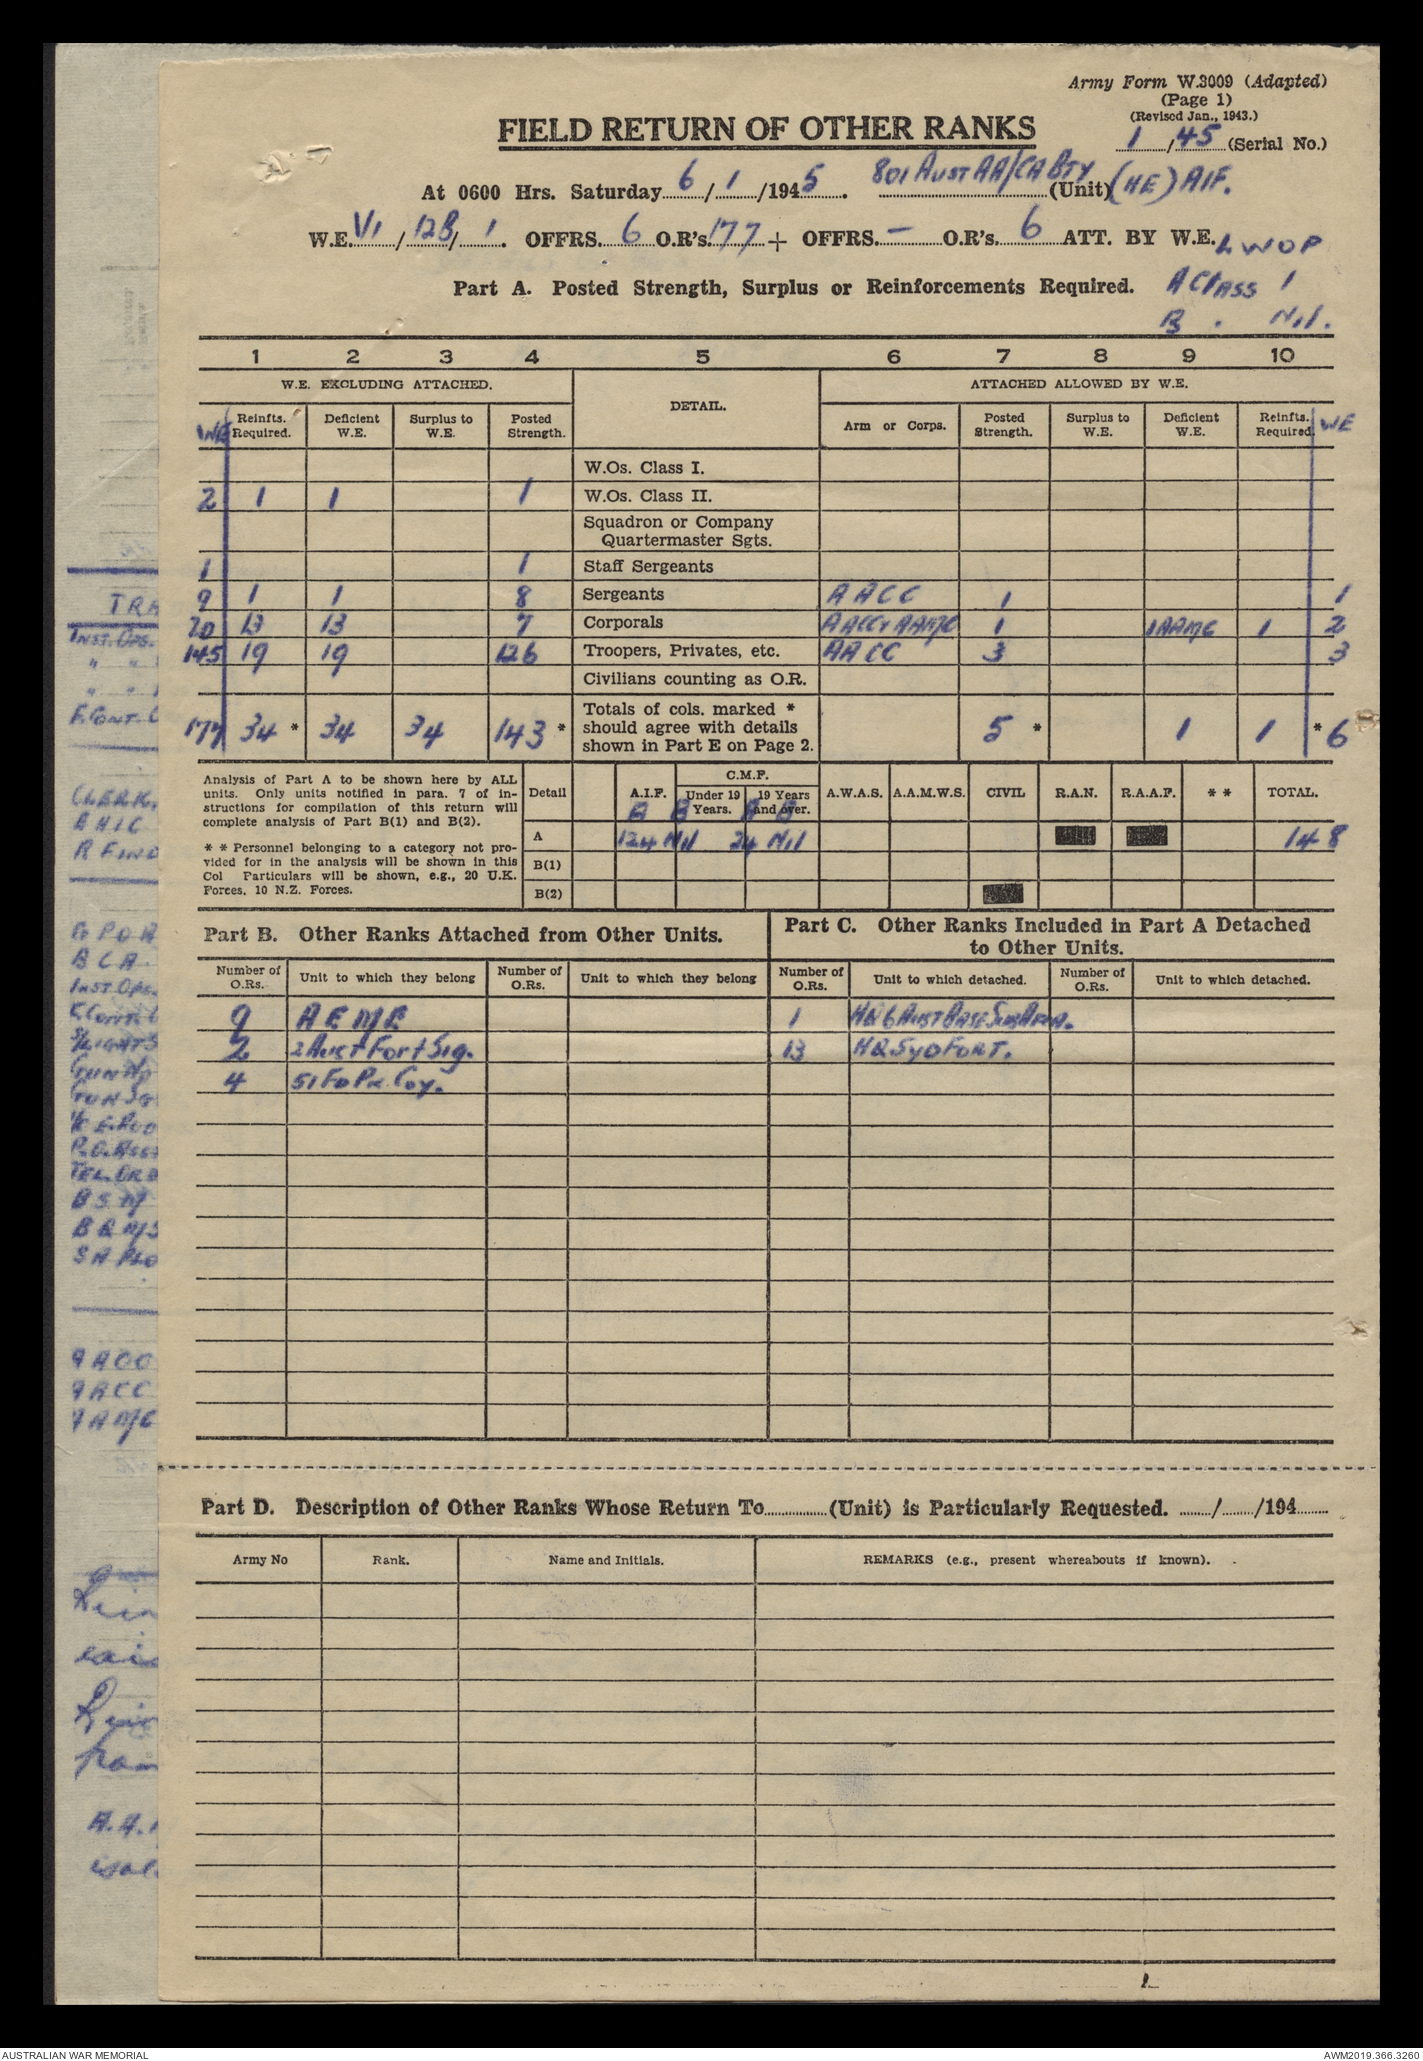 Army Form W.3009 (Adapted)
(Page 1)
(Revised Jan., 1943.)
FIELD RETURN OF OTHER RANKS
1/45 (Serial No.)
At 0600 Hrs. Saturday 6/1/1945. 801 AUST AA/CA BTY (Unit) (HE) AIF.
W.E. VI/12B/1. OFFRS. 6 O.R's. 177 + OFFRS. — O.R's. 6 ATT. BY W.E.
LWOP
Part A. Posted Strength, Surplus or Reinforcements Required.
A Class 1
B . Nil.
1 2 3 4 5 6 7 8 9 10
W.E. EXCLUDING ATTACHED. DETAIL. ATTACHED ALLOWED BY W.E.
WE Reinfts. Required. Deficient W.E. Surplus to W.E. Posted Strength. Arm or Corps. Posted Strength. Surplus to W.E. Deficient W.E. Reinfts. Required. WE
W.Os. Class I.
2 1 1 1 W.Os. Class II.
Squadron or Company
Quartermaster Sgts.
1 1 Staff Sergeants
9 1 1 8 Sergeants AACC 1 1
20 13 13 7 Corporals AACC, AAMC 1 1AAMC 1 2
145 19 19 126 Troopers, Privates, etc. AACC 3 3
Civilians counting as O.R.
Totals of cols. marked *
177 34 * 34 34 143 * should agree with details 5 * 1 1 * 6
shown in Part E on Page 2.
Analysis of Part A to be shown here by ALL
units. Only units notified in para. 7 of in-
structions for compilation of this return will
complete analysis of Part B(1) and B(2).
* * Personnel belonging to a category not pro-
vided for in the analysis will be shown in this
Col Particulars will be shown, e.g., 20 U.K.
Forces, 10 N.Z. Forces.
C.M.F.
Detail A.I.F. Under 19 Years. 19 Years and over. A.W.A.S. A.A.M.W.S. CIVIL R.A.N. R.A.A.F. * * TOTAL.
A B A B
A 124 Nil 24 Nil 148
B(1)
B(2)
Part B. Other Ranks Attached from Other Units.
Part C. Other Ranks Included in Part A Detached
to Other Units.
Number of O.Rs. Unit to which they belong Number of O.Rs. Unit to which they belong Number of O.Rs. Unit to which detached. Number of O.Rs. Unit to which detached.
9 AEME 1 HQ 6 AUST BASE SUB AREA.
2 2 Aust Fort Sig. 13 HQ SYD FORT.
4 51 FD PK Coy.
Part D. Description of Other Ranks Whose Return To (Unit) is Particularly Requested. / /194
Army No Rank. Name and Initials. REMARKS (e.g., present whereabouts if known).
TRA
INST. OPS.
" "
" "
F. CONT.
CLERK,
R FIND
G P O A
B C A
INST. OPS.
F. CONT.
S/LIGHTS
GUN
P.O. ASST
TEL. ORD
B S M
B Q M S
9 A C C
9 A M C
A.A.
AUSTRALIAN WAR MEMORIAL
AWM2019.366.3260